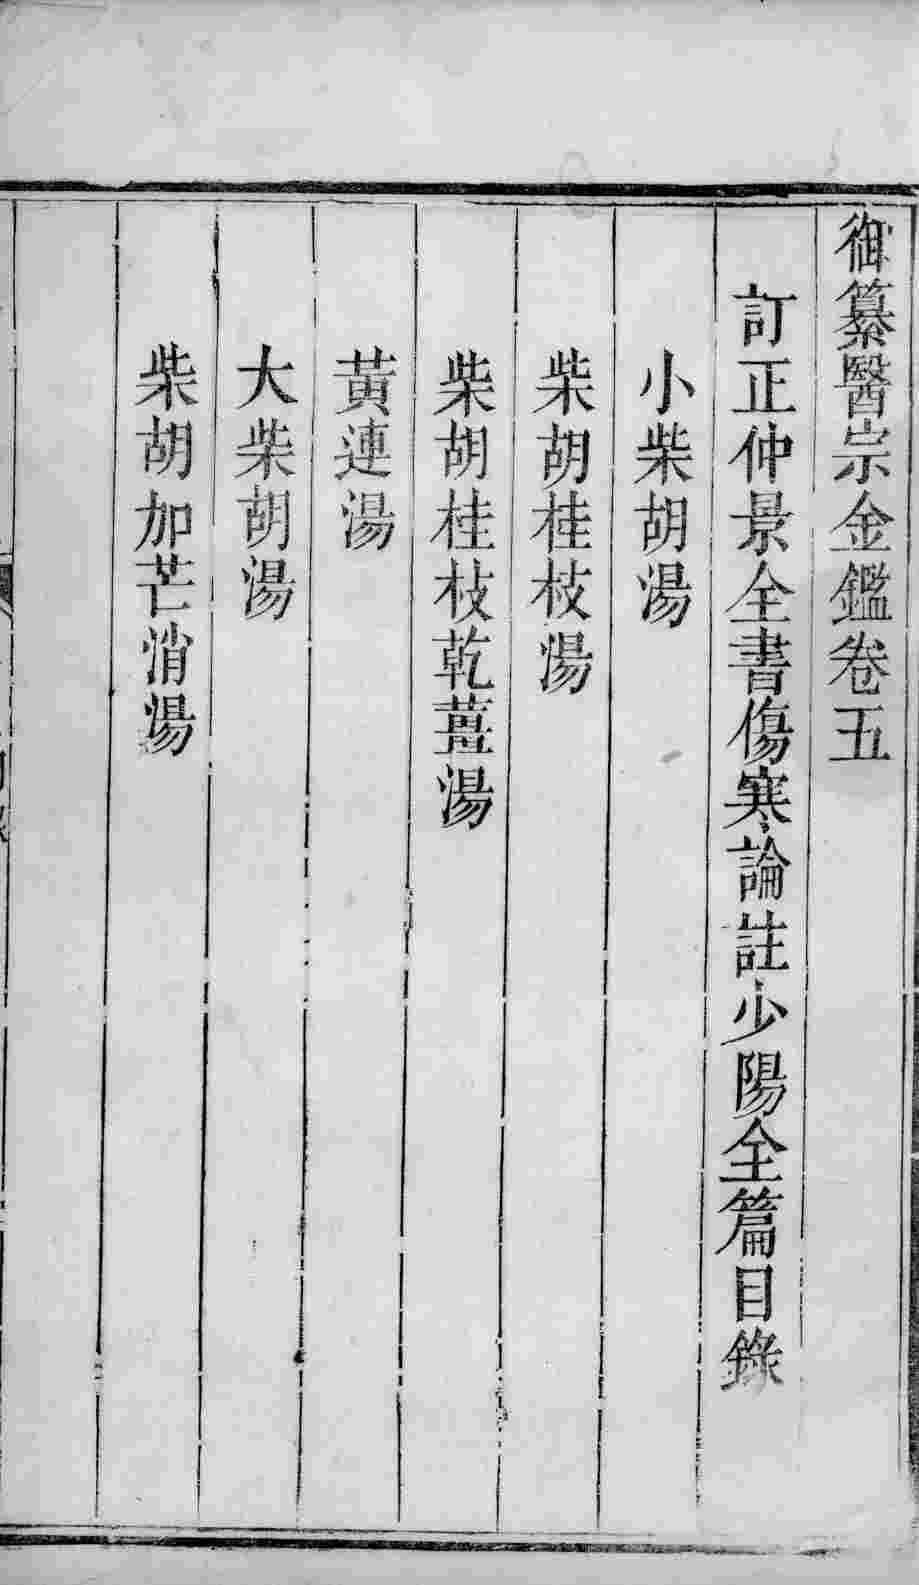 御纂醫宗金鑑卷五
訂正仲景全書傷寒論註少陽全篇目錄
小柴胡湯
柴胡桂枝湯
柴胡桂枝乾薑湯
黃連湯
大柴胡湯
柴胡加芒消湯